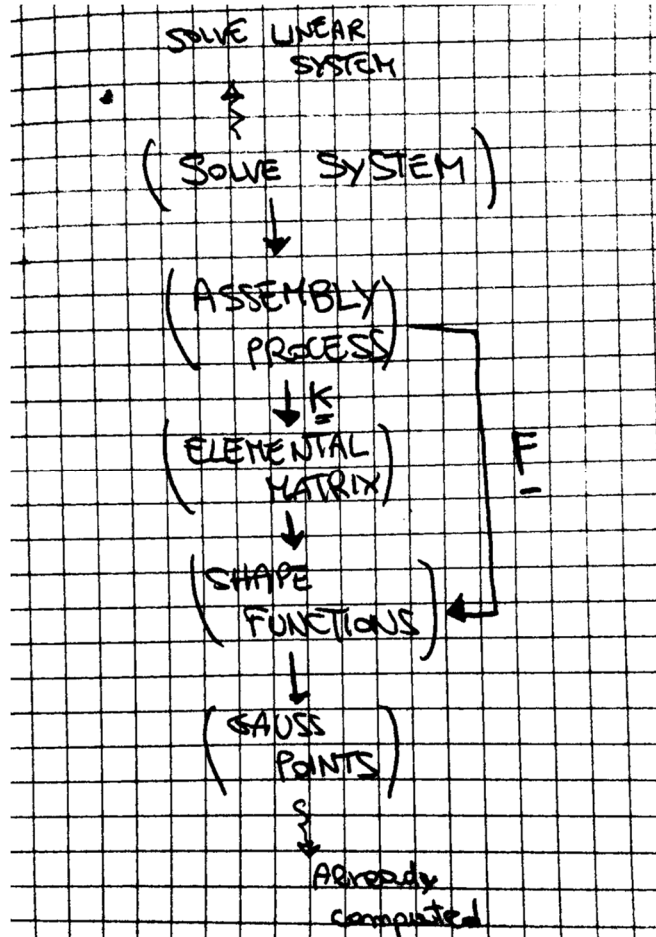 SOLVE LINEAR
SYSTEM
(SOLVE SYSTEM)
(ASSEMBLY
PROCESS)
K
(ELEMENTAL
MATRIX)
F
(SHAPE
FUNCTIONS)
(GAUSS
POINTS)
Already
computed